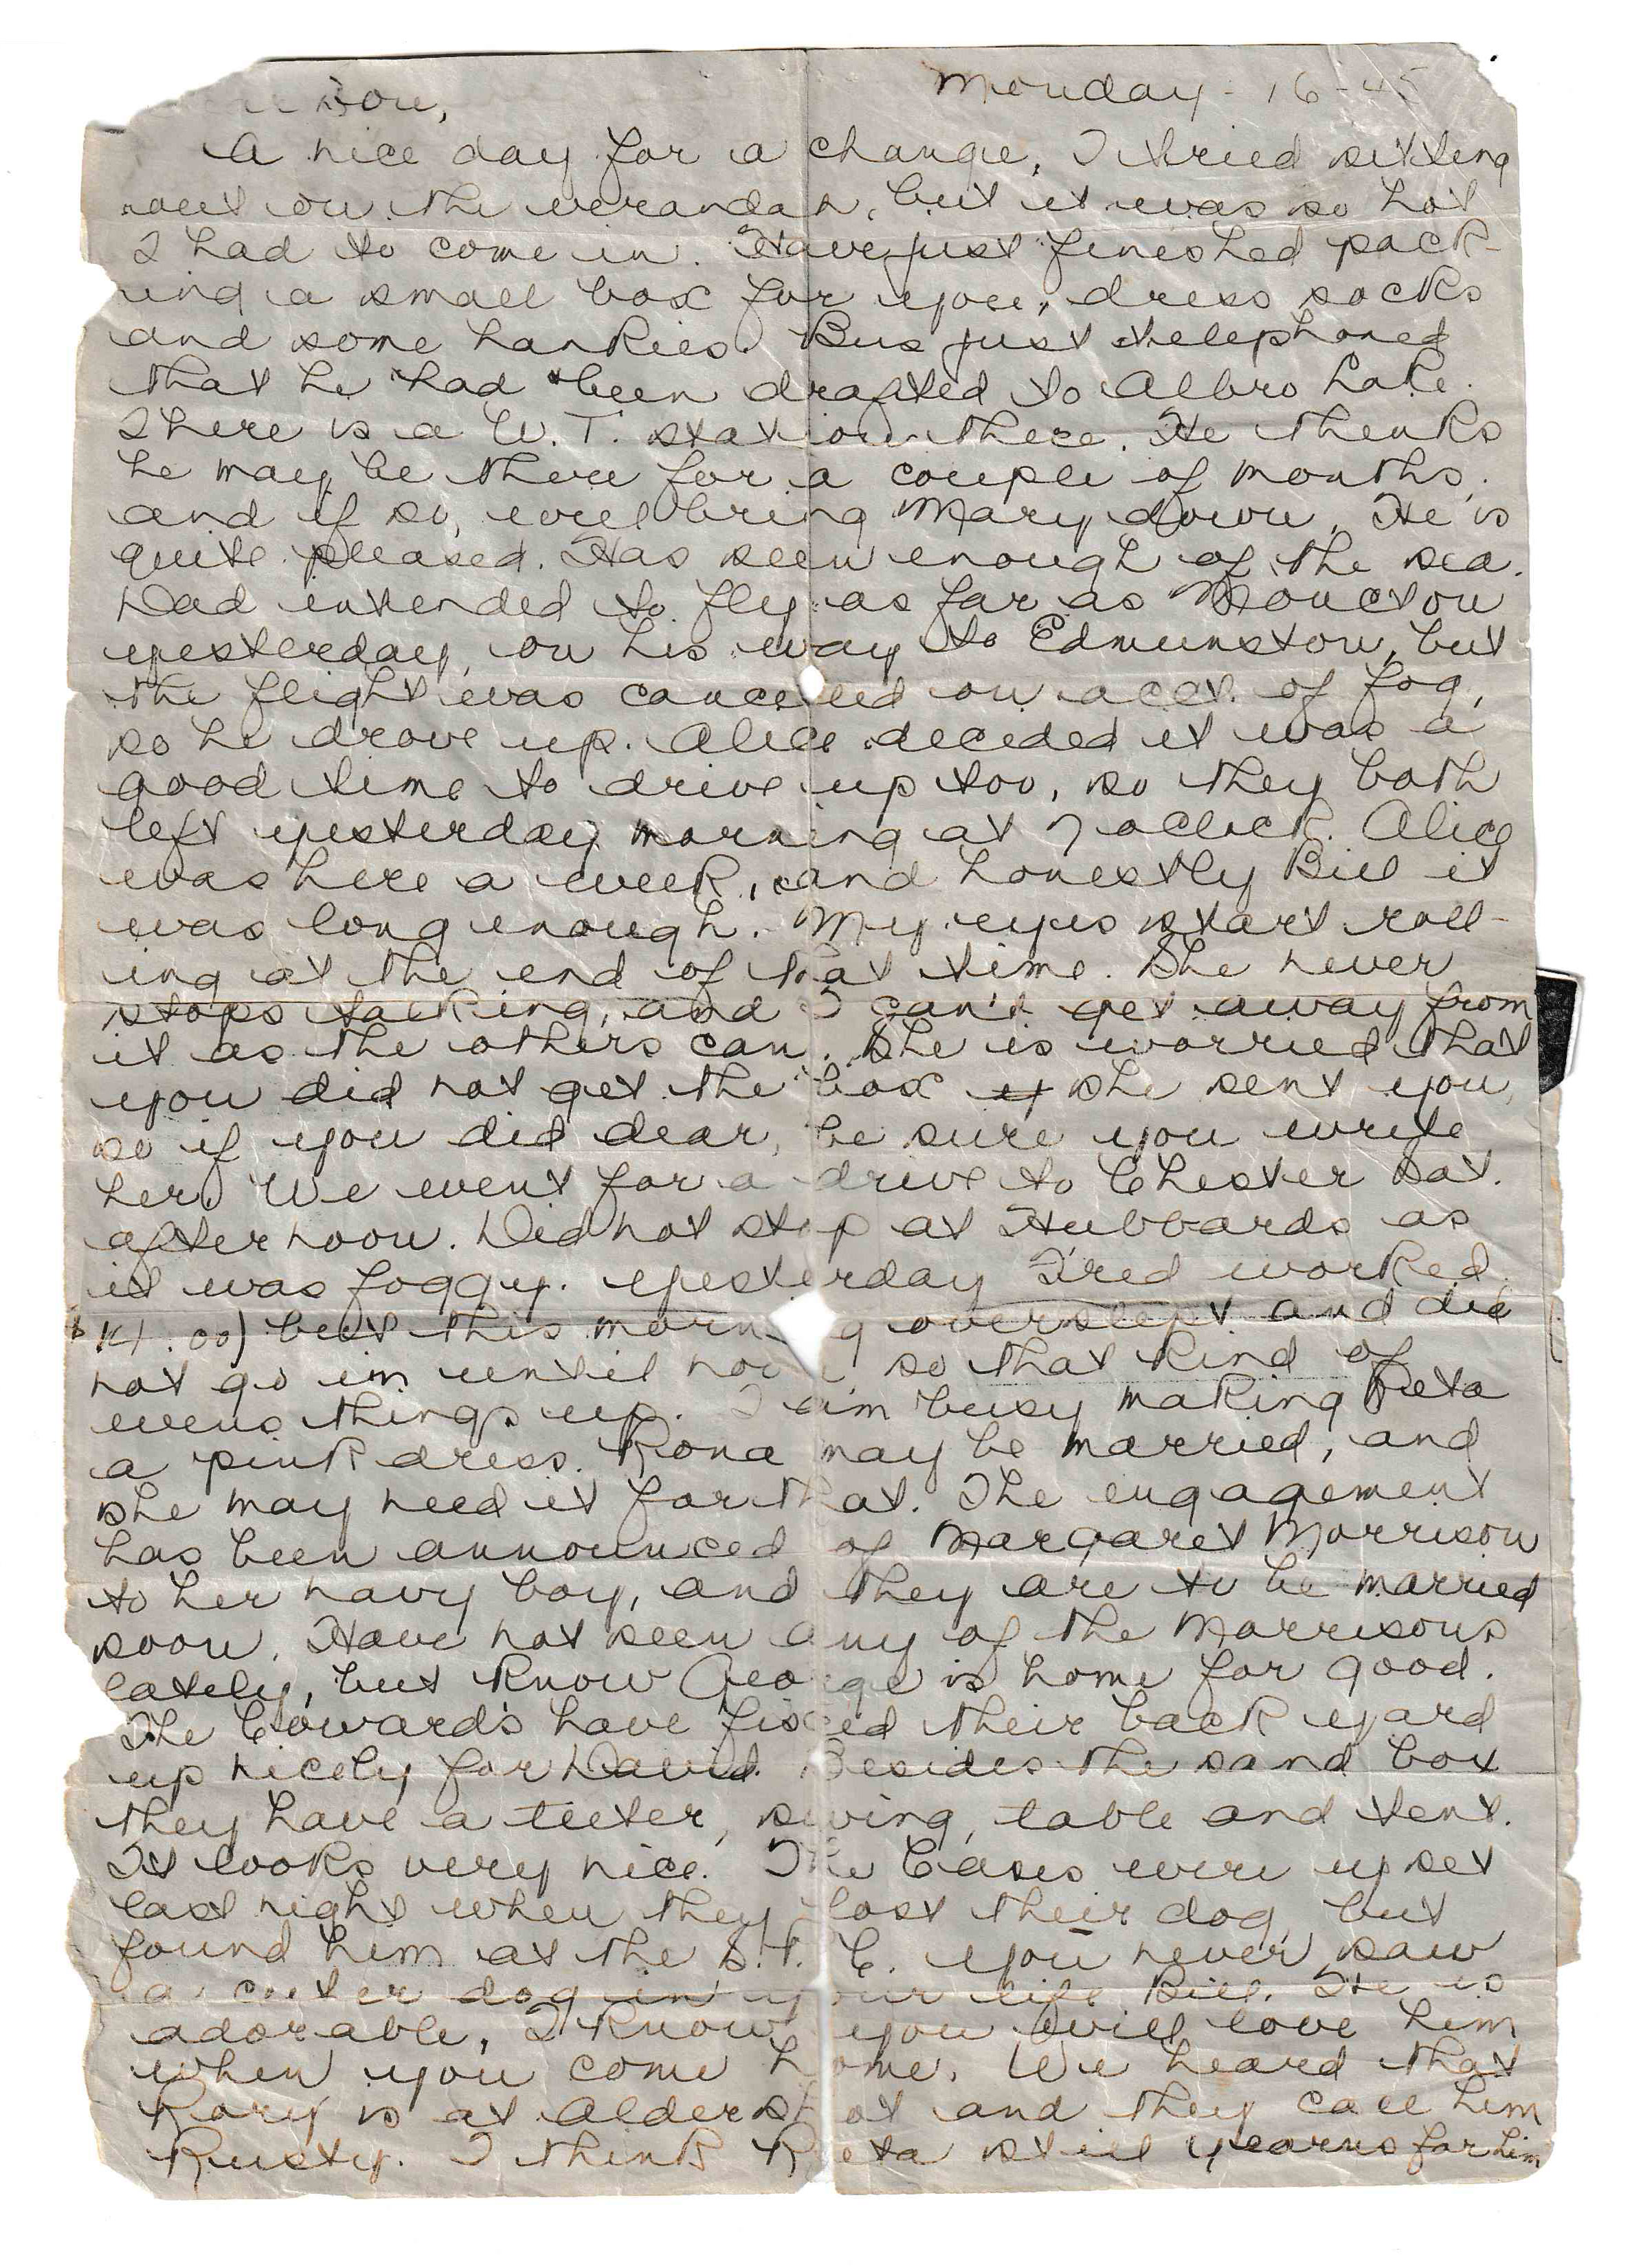 Son, Monday - 16-45
A nice day for a change. I tried sitting
out on the verandah, but it was so hot
I had to come in. Have just finished pack-
ing a small box for you, dress socks
and some hankies. Bus just telephoned
that he had been drafted to Albro Lake.
There is a W.T. station there. He thinks
he may be there for a couple of months,
and if so, will bring Mary down. He is
quite pleased. Has seen enough of the sea.
Dad intended to fly as far as Moncton
yesterday, on his way to Edmunston, but
the flight was cancelled on acct. of fog,
so he drove up. Alice decided it was a
good time to drive up too, so they both
left yesterday morning at 7 oclock. Alice
was here a week, and honestly Bill it
was long enough. My eyes start roll-
ing at the end of that time. She never
stops talking, and I can't get away from
it as the others can. She is worried that
you did not get the box she sent you,
so if you did dear, be sure you write
her. We went for a drive to Chester Sat.
afternoon. Did not stop at Hubbards as
it was foggy. Yesterday Fred worked
14.00) but this morning overslept and did
not go in until noon, so that kind of
evens things up. I am busy making Reta
a pink dress. Rona may be married, and
she may need it for that. The engagement
has been announced of Margaret Morrison
to her navy boy, and they are to be married
soon. Have not seen any of the Morrisons
lately, but know George is home for good.
The Cowards have fixed their back yard
up nicely for David. Besides the sand box
they have a teeter, swing, table and tent.
It looks very nice. The Cases were upset
last night when they lost their dog, but
found him at the S.P.C. You never saw
a cuter dog in your life Bill. He is
adorable, I know you will love him
when you come home. We heard that
Rory is at Aldershot and they call him
Rusty. I think Reta still yearns for him